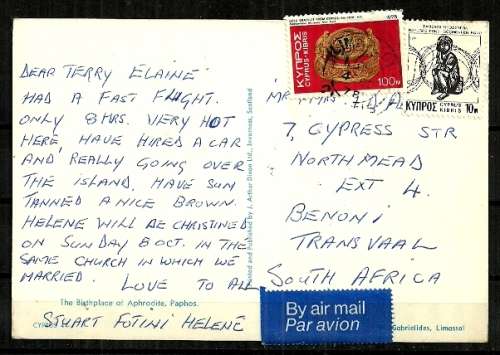 DEAR TERRY ELAINE
HAD A FAST FLIGHT.
ONLY 8 HRS. VERY HOT
HERE, HAVE HIRED A CAR
AND REALLY GOING OVER
THE ISLAND. HAVE SUN
TANNED A NICE BROWN.
HELENE WILL BE CHRISTINED
ON SUNDAY 8 OCT. IN THE
SAME CHURCH IN WHICH WE
MARRIED. LOVE TO ALL
The Birthplace of Aphrodite, Paphos.
STUART FOTINI HELENE
Printed and Published by J. Arthur Dixon Ltd., Inverness, Scotland
1978
ΚΥΠΡΟΣ
CYPRUS-KIBRIS
100м
ΚΥΠΡΟΣ
CYPRUS
KIBRIS
10м
MR
7, CYPRESS STR
NORTHMEAD
EXT 4.
BENONI
TRANSVAAL
SOUTH AFRICA
By air mail
Par avion
Gabrielides, Limassol